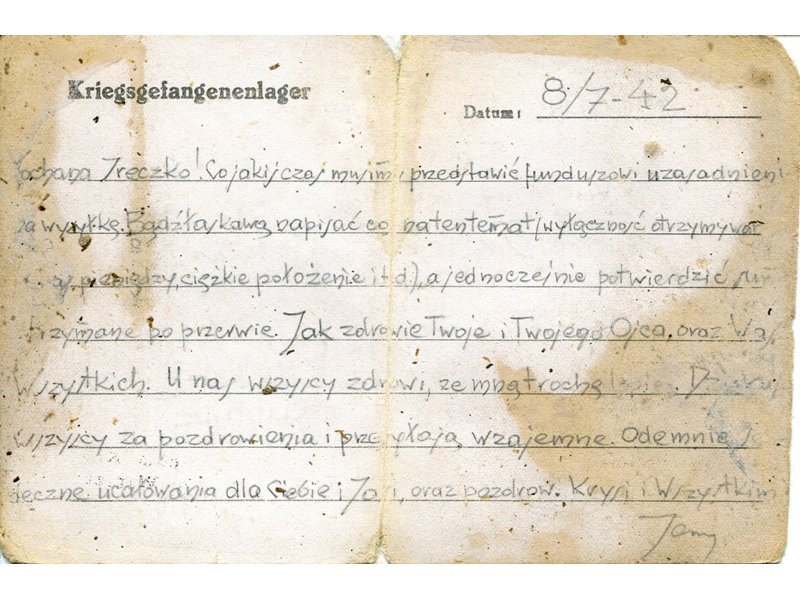 Kriegsgefangenenlager
Datum: 8/7-42
ochana Ireczko! Co jakiś czas musimy przedstawić funduszowi uzasadnieni
za wysyłkę. Bądź łaskawa napisać co na ten temat (wyłączność otrzymywa
pieniędzy, ciężkie położenie itd.), a jednocześnie potwierdzić
trzymane po przerwie. Jak zdrowie Twoje i Twojego Ojca, oraz Was
Wszystkich. U nas wszyscy zdrowi, ze mną trochę lepiej.
wszyscy za pozdrowienia i przesyłają wzajemne. Odemnie
deczne ucałowania dla Ciebie i Jasi, oraz pozdrow. Krysi i Wszystkim